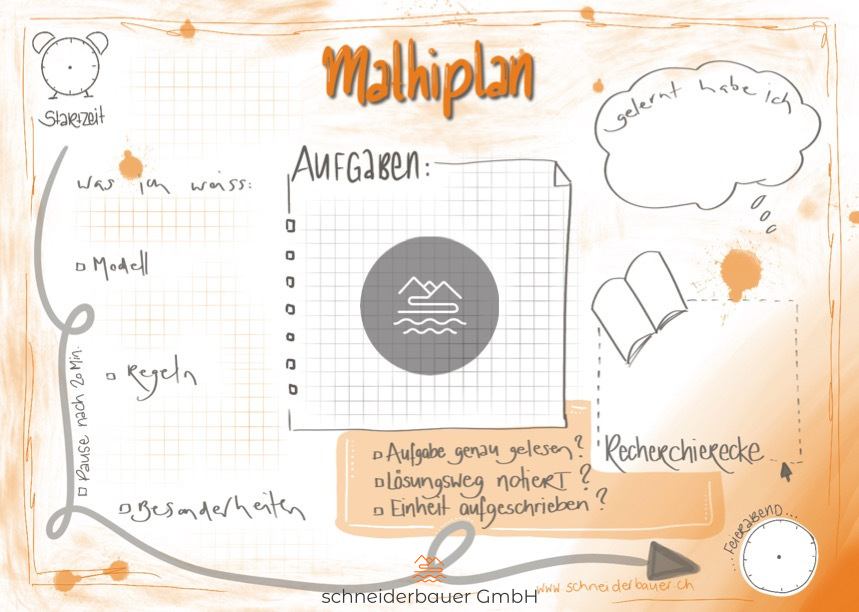 Mathiplan
Startzeit
gelernt habe ich
Aufgaben:
Was ich weiss:
Modell
Regeln
Pause nach 20 Min.
Besonderheiten
Aufgabe genau gelesen?
Lösungsweg notiert?
Einheit aufgeschrieben?
Recherchierecke
...Feierabend...
www.schneiderbauer.ch
schneiderbauer GmbH